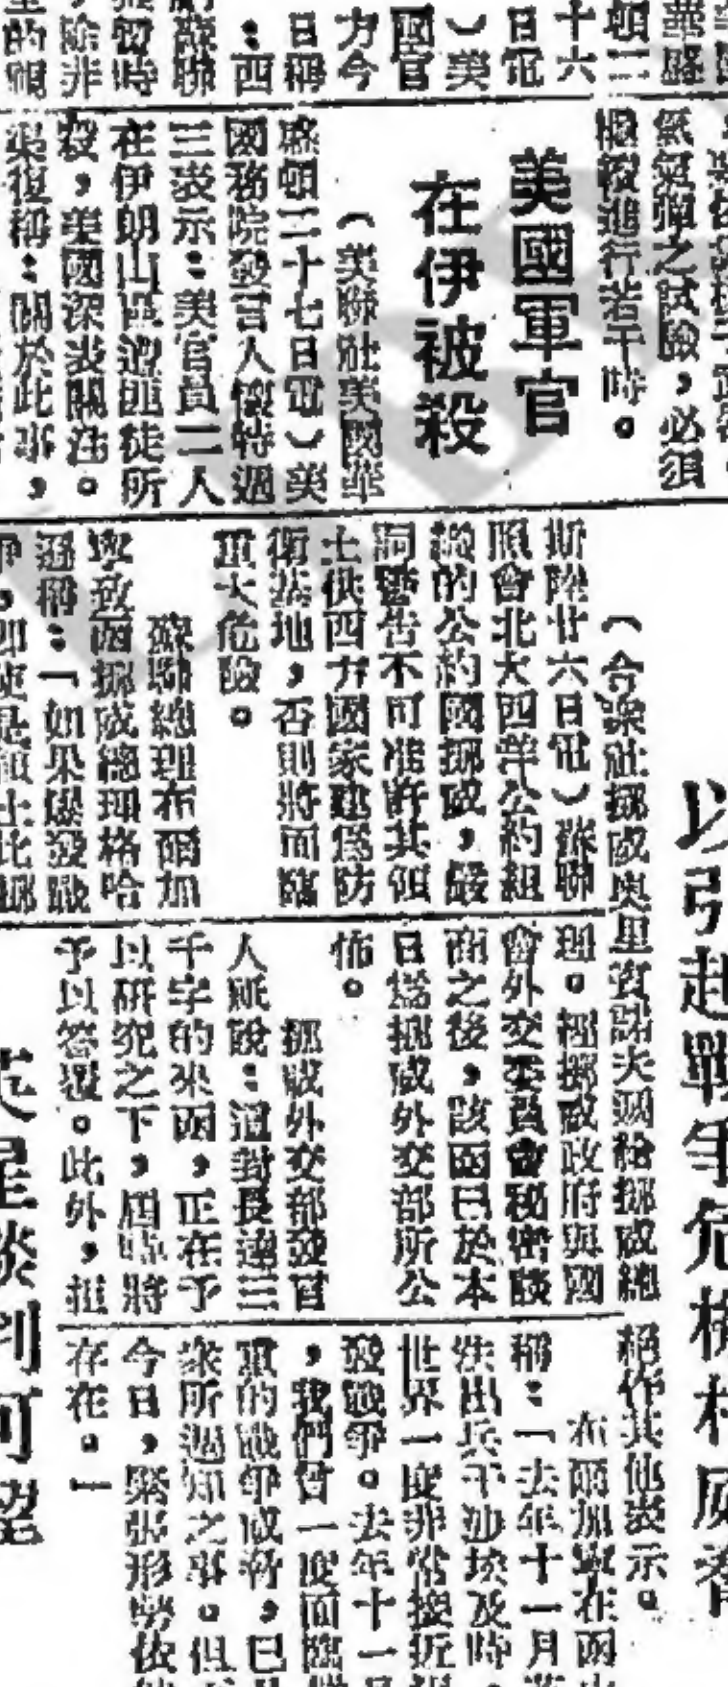 頓二
十六
日電
︶美
國官
方今
日稱
：西
蘇聯
暫時
除非
氫氣彈之試驗，必須
繼續進行若干時。
美國軍官
在伊被殺
（美聯社美國華
盛頓二十七日電）美
國務院發言人懷特週
三表示：美官員二人
在伊朗山區遭匪徒所
殺，美國深表關注。
渠復稱：關於此事，
以引起戰爭危機相威脅
（合衆社挪威奧
斯陸廿六日電）蘇聯
照會北大西洋公約組
織的公約國挪威，嚴
詞警告不可准許其領
土供西方國家建爲防
衛基地，否則將面臨
重大危險。
蘇聯總理布爾加
寧致函挪威總理格哈
遜稱：「如果爆發戰
爭，即使是
里資諾夫　給挪威總
理。經挪威政府與國
會外交委員會秘密談
商之後，該函已於本
日爲挪威外交部所公
佈。
挪威外交部發言
人祇說：這對長達三
千字的來函，正在予
以研究之下，屆時將
予以答覆。此外，拒
絕作其他表示。
布爾加寧在函
稱：「去年十一月
法出兵　埃及時
世界一度非常接近
發戰爭。去年十一月
，我們曾一度面臨
重的戰爭威脅，已
衆所週知之事。但
今日，緊張形勢依
存在。」
英星談判可望